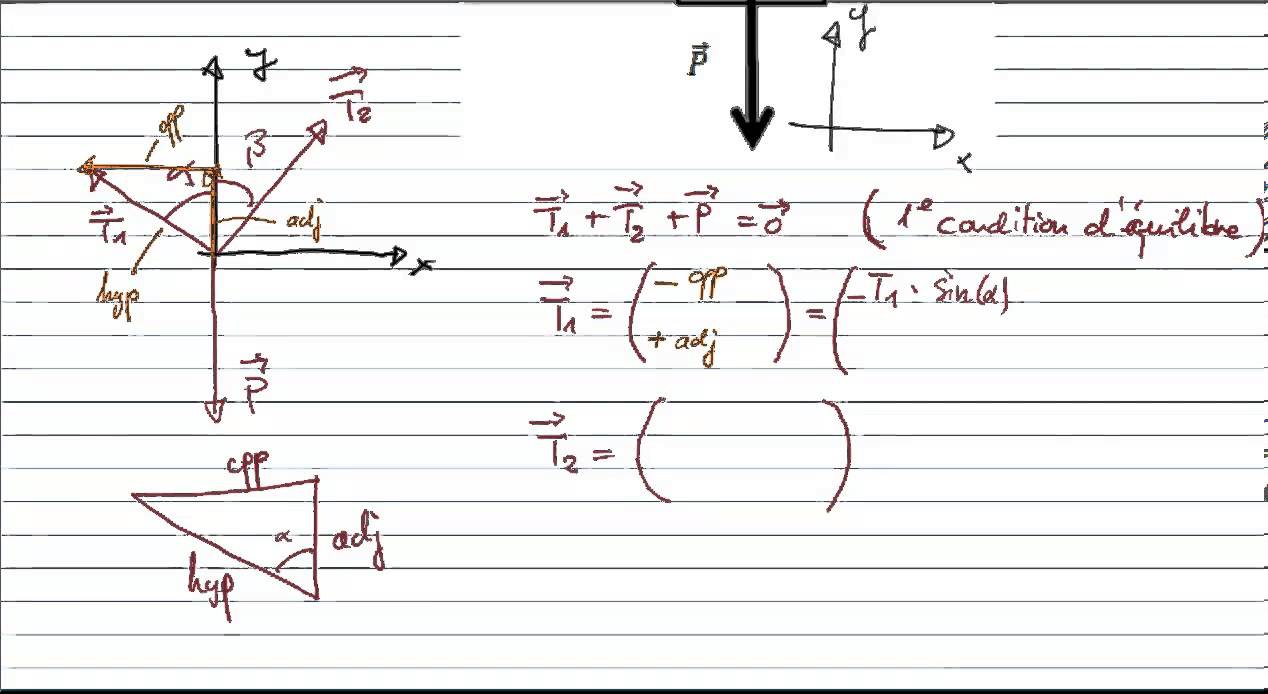 y
T₂
opp
β
α
T₁
adj
hyp
x
P
opp
α
adj
hyp
P
y
x
T₁ + T₂ + P = 0 (1e condition d'équilibre)
T₁ = ( - opp + adj ) = ( - T₁ · sin(α)
T₂ = ( )